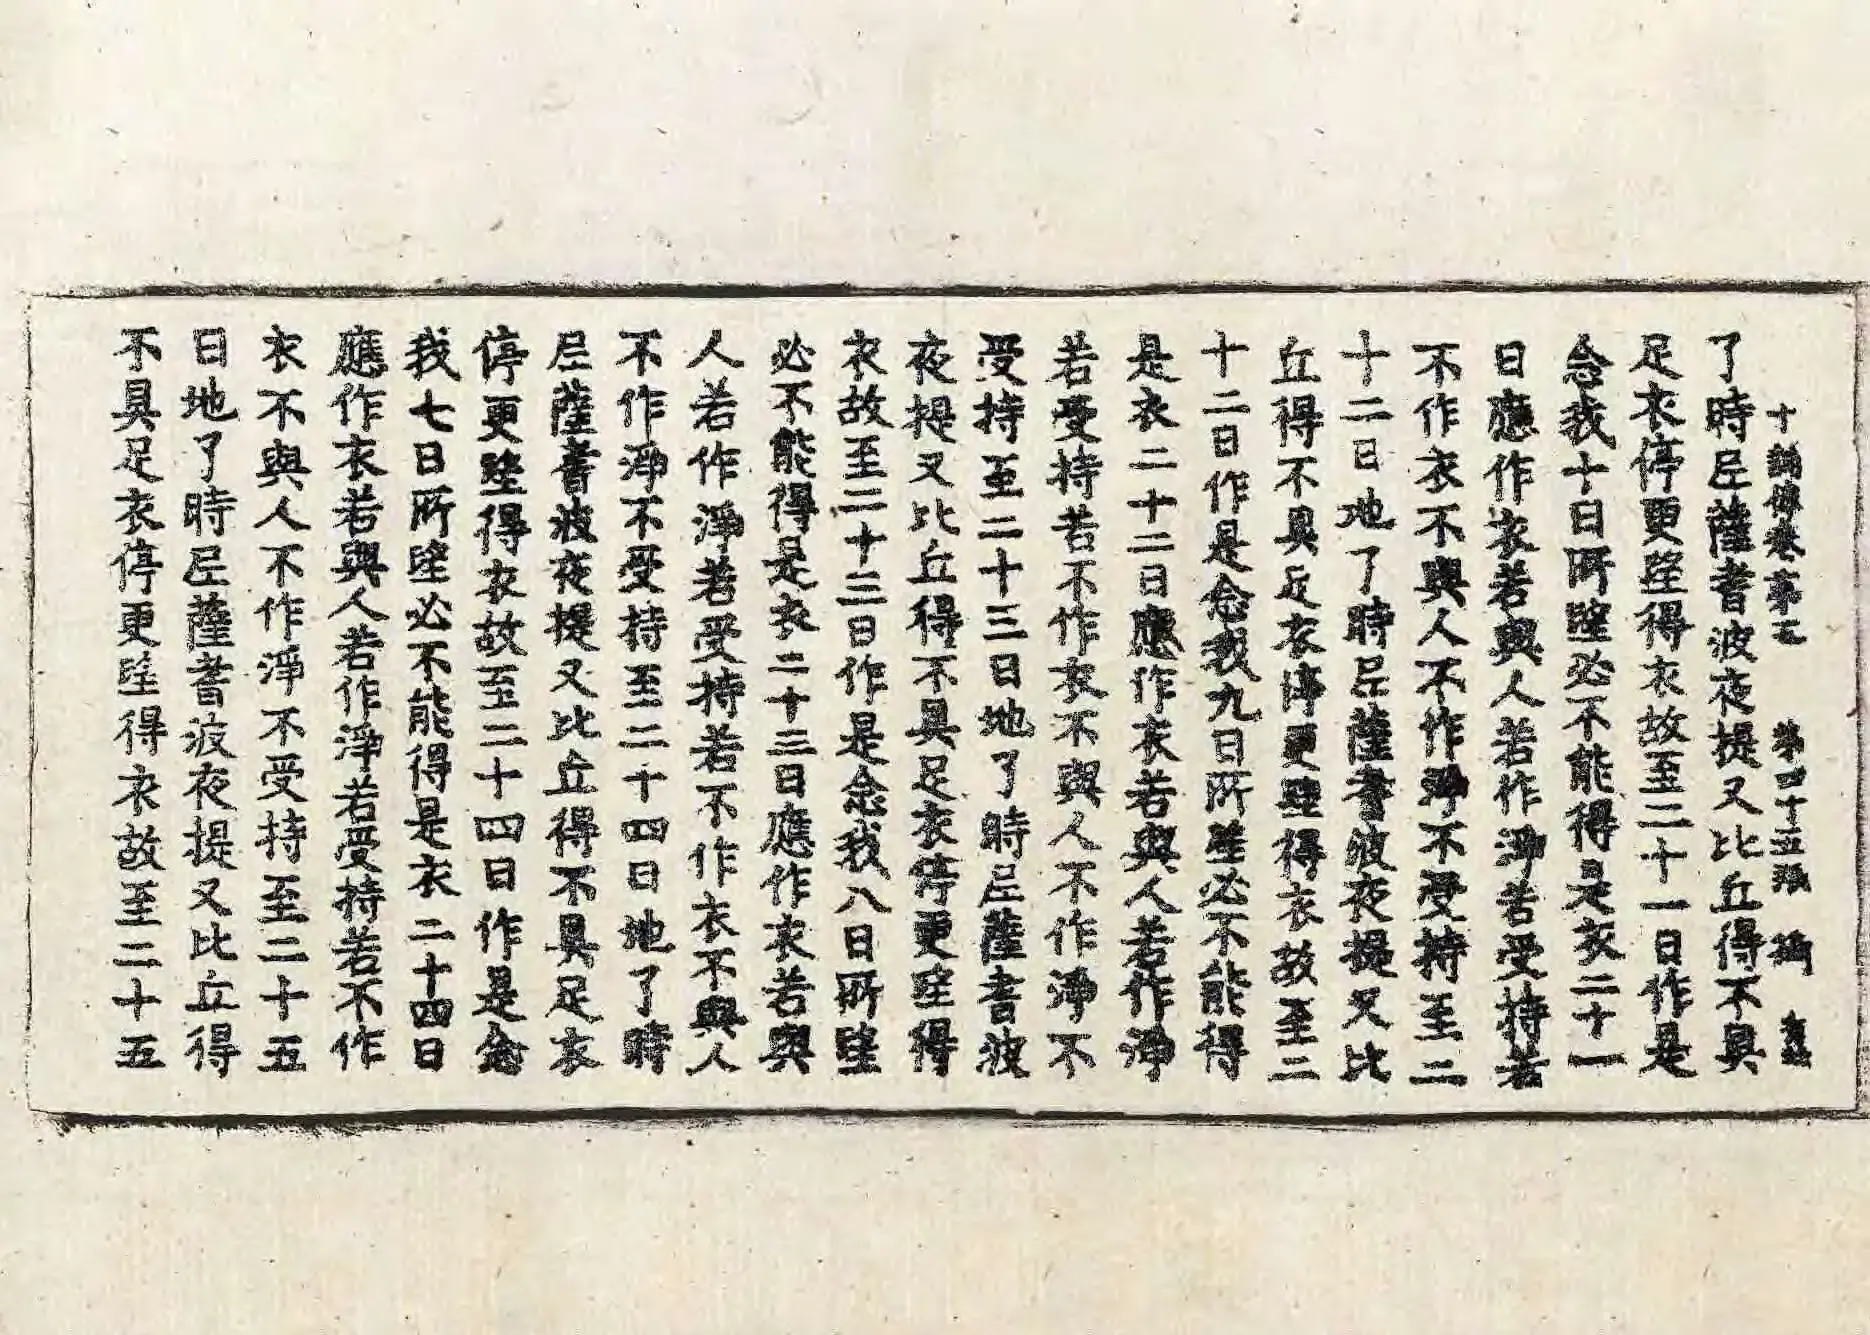 十誦律卷第五 第四十五張
了時尼薩耆波夜提又比丘得不具
足衣停更望得衣故至二十一日作是
念我十日所望必不能得是衣二十一
日應作衣若與人若作淨若受持若
不作衣不與人不作淨不受持至二
十二日地了時尼薩耆波夜提又比
丘得不具足衣停更望得衣故至二
十二日作是念我九日所望必不能得
是衣二十二日應作衣若與人若作淨
若受持若不作衣不與人不作淨不
受持至二十三日地了時尼薩耆波
夜提又比丘得不具足衣停更望得
衣故至二十三日作是念我八日所望
必不能得是衣二十三日應作衣若與
人若作淨若受持若不作衣不與人
不作淨不受持至二十四日地了時
尼薩耆波夜提又比丘得不具足衣
停更望得衣故至二十四日作是念
我七日所望必不能得是衣二十四日
應作衣若與人若作淨若受持若不作
衣不與人不作淨不受持至二十五
日地了時尼薩耆波夜提又比丘得
不具足衣停更望得衣故至二十五